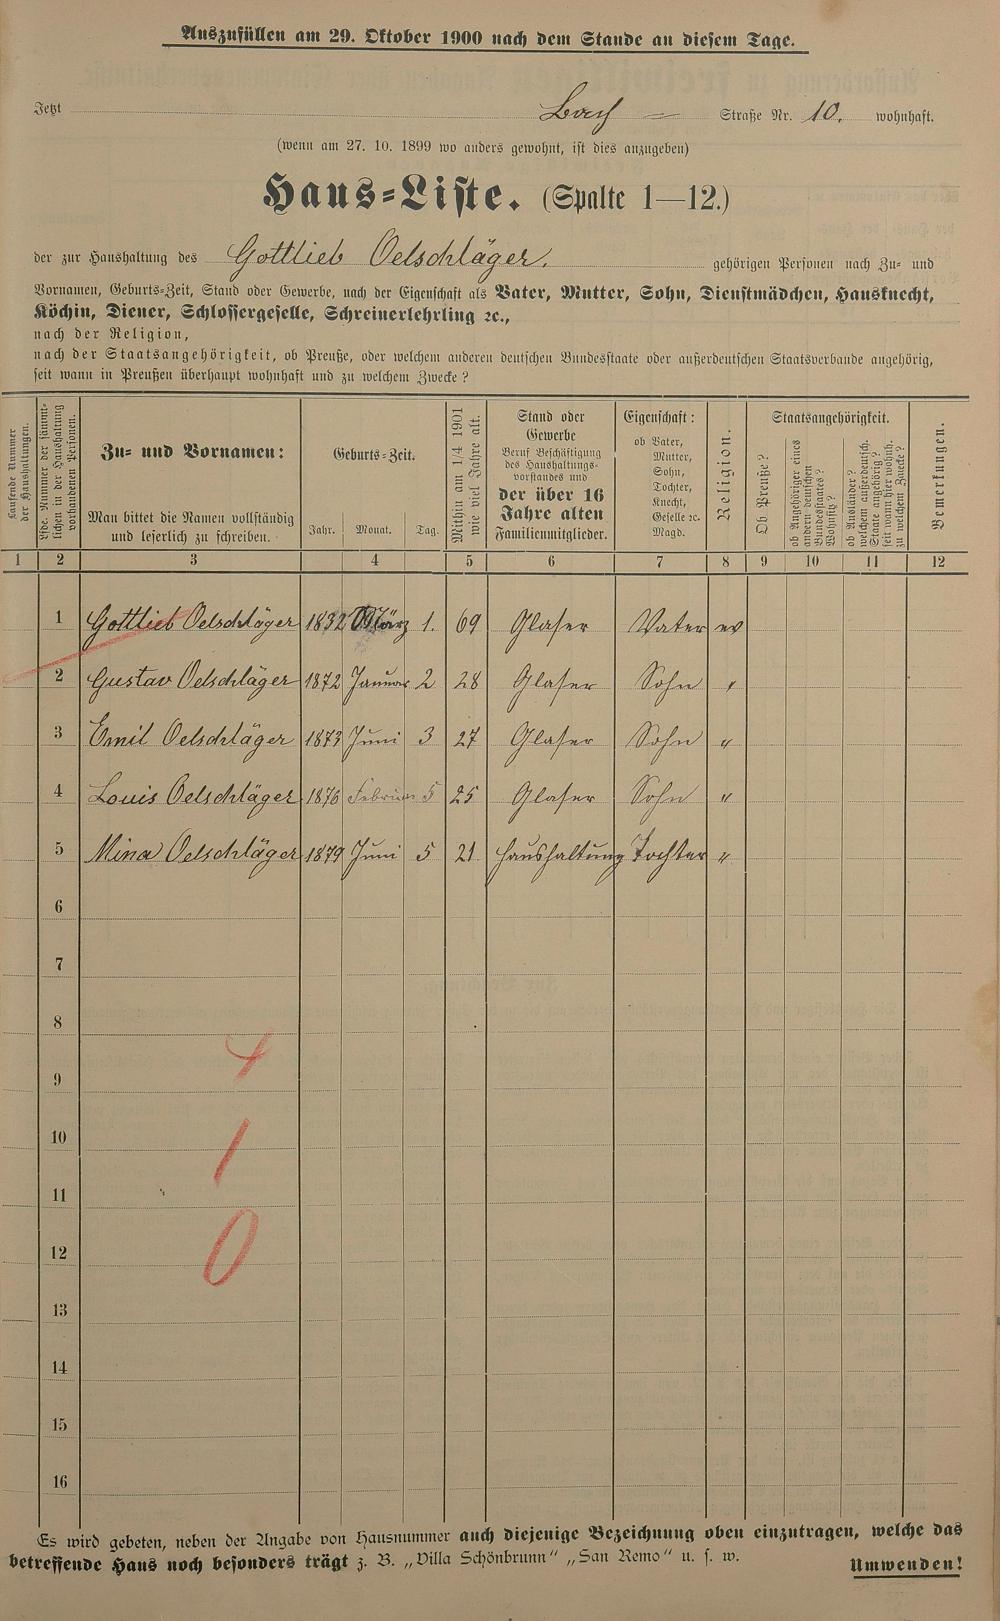 Auszufüllen am 29. Oktober 1900 nach dem Stande an diesem Tage.
Jetzt Bach = Straße Nr. 10. wohnhaft.
(wenn am 27. 10. 1899 wo anders gewohnt, ist dies anzugeben)
Haus-Liste. (Spalte 1—12.)
der zur Haushaltung des Gottlieb Oelschläger. gehörigen Personen nach Zu- und
Vornamen, Geburts-Zeit, Stand oder Gewerbe, nach der Eigenschaft als Vater, Mutter, Sohn, Dienstmädchen, Hausknecht,
Köchin, Diener, Schlossergeselle, Schreinerlehrling ꝛc.,
nach der Religion,
nach der Staatsangehörigkeit, ob Preuße, oder welchem anderen deutschen Bundesstaate oder außerdeutschen Staatsverbande angehörig,
seit wann in Preußen überhaupt wohnhaft und zu welchem Zwecke?
Laufende Nummer
der Haushaltungen.
Lfde. Nummer der sämmt-
lichen in der Haushaltung
vorhandenen Personen.
Zu- und Vornamen:
Man bittet die Namen vollständig
und leserlich zu schreiben.
Geburts-Zeit.
Jahr. Monat. Tag.
Mithin am 1/4 1901
wie viel Jahre alt.
Stand oder
Gewerbe
Beruf Beschäftigung
des Haushaltungs-
vorstandes und
der über 16
Jahre alten
Familienmitglieder.
Eigenschaft:
ob Vater,
Mutter,
Sohn,
Tochter,
Knecht,
Geselle ꝛc.
Magd.
Religion.
Staatsangehörigkeit.
Ob Preuße?
ob Angehöriger eines
andern deutschen
Bundesstaates?
Wohnsitz?
ob Ausländer?
welchem außerdeutsch.
Staate angehörig?
seit wann hier wohnh.
zu welchem Zwecke?
Bemerkungen.
1 2 3 4 5 6 7 8 9 10 11 12
1 Gottlieb Oelschläger 1832 März 1. 69 Glaser Vater ev
2 Gustav Oelschläger 1872 Januar 2 28 Glaser Sohn "
3 Emil Oelschläger 1873 Juni 3 27 Glaser Sohn "
4 Louis Oelschläger 1876 Februar 5 25 Glaser Sohn "
5 Mina Oelschläger 1879 Juni 5 21 Haushaltung Tochter "
6
7
8
4
9
10
1
11
12
0
13
14
15
16
Es wird gebeten, neben der Angabe von Hausnummer auch diejenige Bezeichnung oben einzutragen, welche das
betreffende Haus noch besonders trägt z. B. „Villa Schönbrunn" „San Remo" u. s. w.
Umwenden!